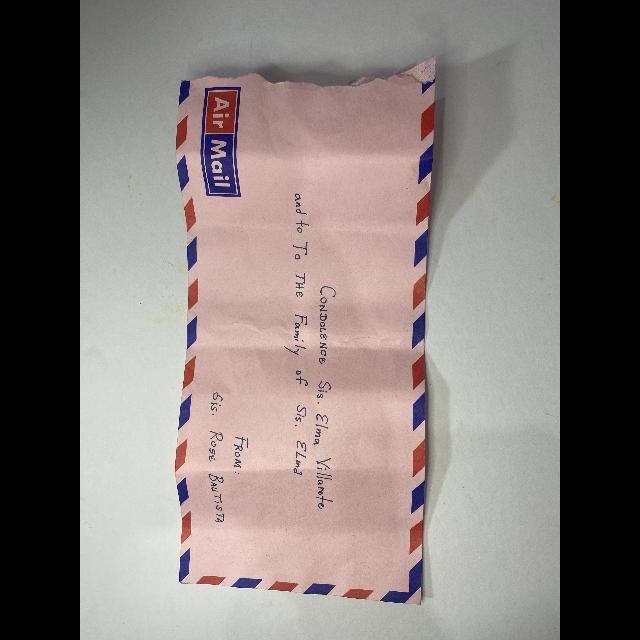 Air Mail
CONDOLENCE Sis. Elma Villarote
and to To THE Family of Sis. ELMA
FROM:
Sis. ROSE BAUTISTA